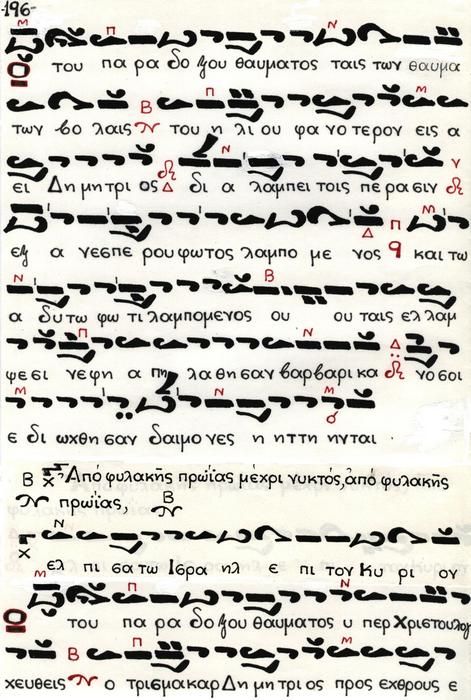 -196-
Ο του πα ρα δο ξου θαυματος ταις των θαυμα
των βο λαις του η λι ου φα νο τερον εις α
ει Δη μη τρι ος δι α λαμπει τοις πε ρα σιν
εξ α νεσπε ρου φωτος λαμπο με νος και τω
α δυ τω φω τι λαμπομενος ου ου ταις ελ λαμ
ψε σι νεφη α πη λα θη σαν βαρβαρι κα νο σοι
ε δι ωχθη σαν δαιμο νες η ηττη ηνται .
Ἀπό φυλακῆς πρωΐας μέχρι νυκτός, ἀπό φυλακῆς
πρωΐας,
ελ πι σα τω Ισρα ηλ ε πι τον Κυ ρι ον
Ο του πα ρα δο ξου θαυματος υ περ Χριστου λογ
χευθεις ο τρισμακαρ Δη μη τρι ος προς εχθρους ε